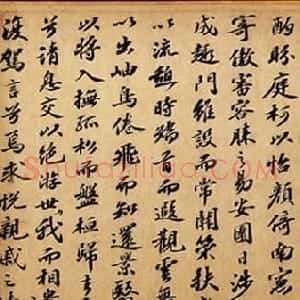 酌眄庭柯以怡顏倚南窓
寄傲審容膝之易安園日涉
成趣門雖設而常關策扶
以流憩時矯首而遐觀雲無
以出岫鳥倦飛而知還景翳
以將入撫孤松而盤桓歸去
兮請息交以絕游世我而相
復駕言兮焉求悅親戚之